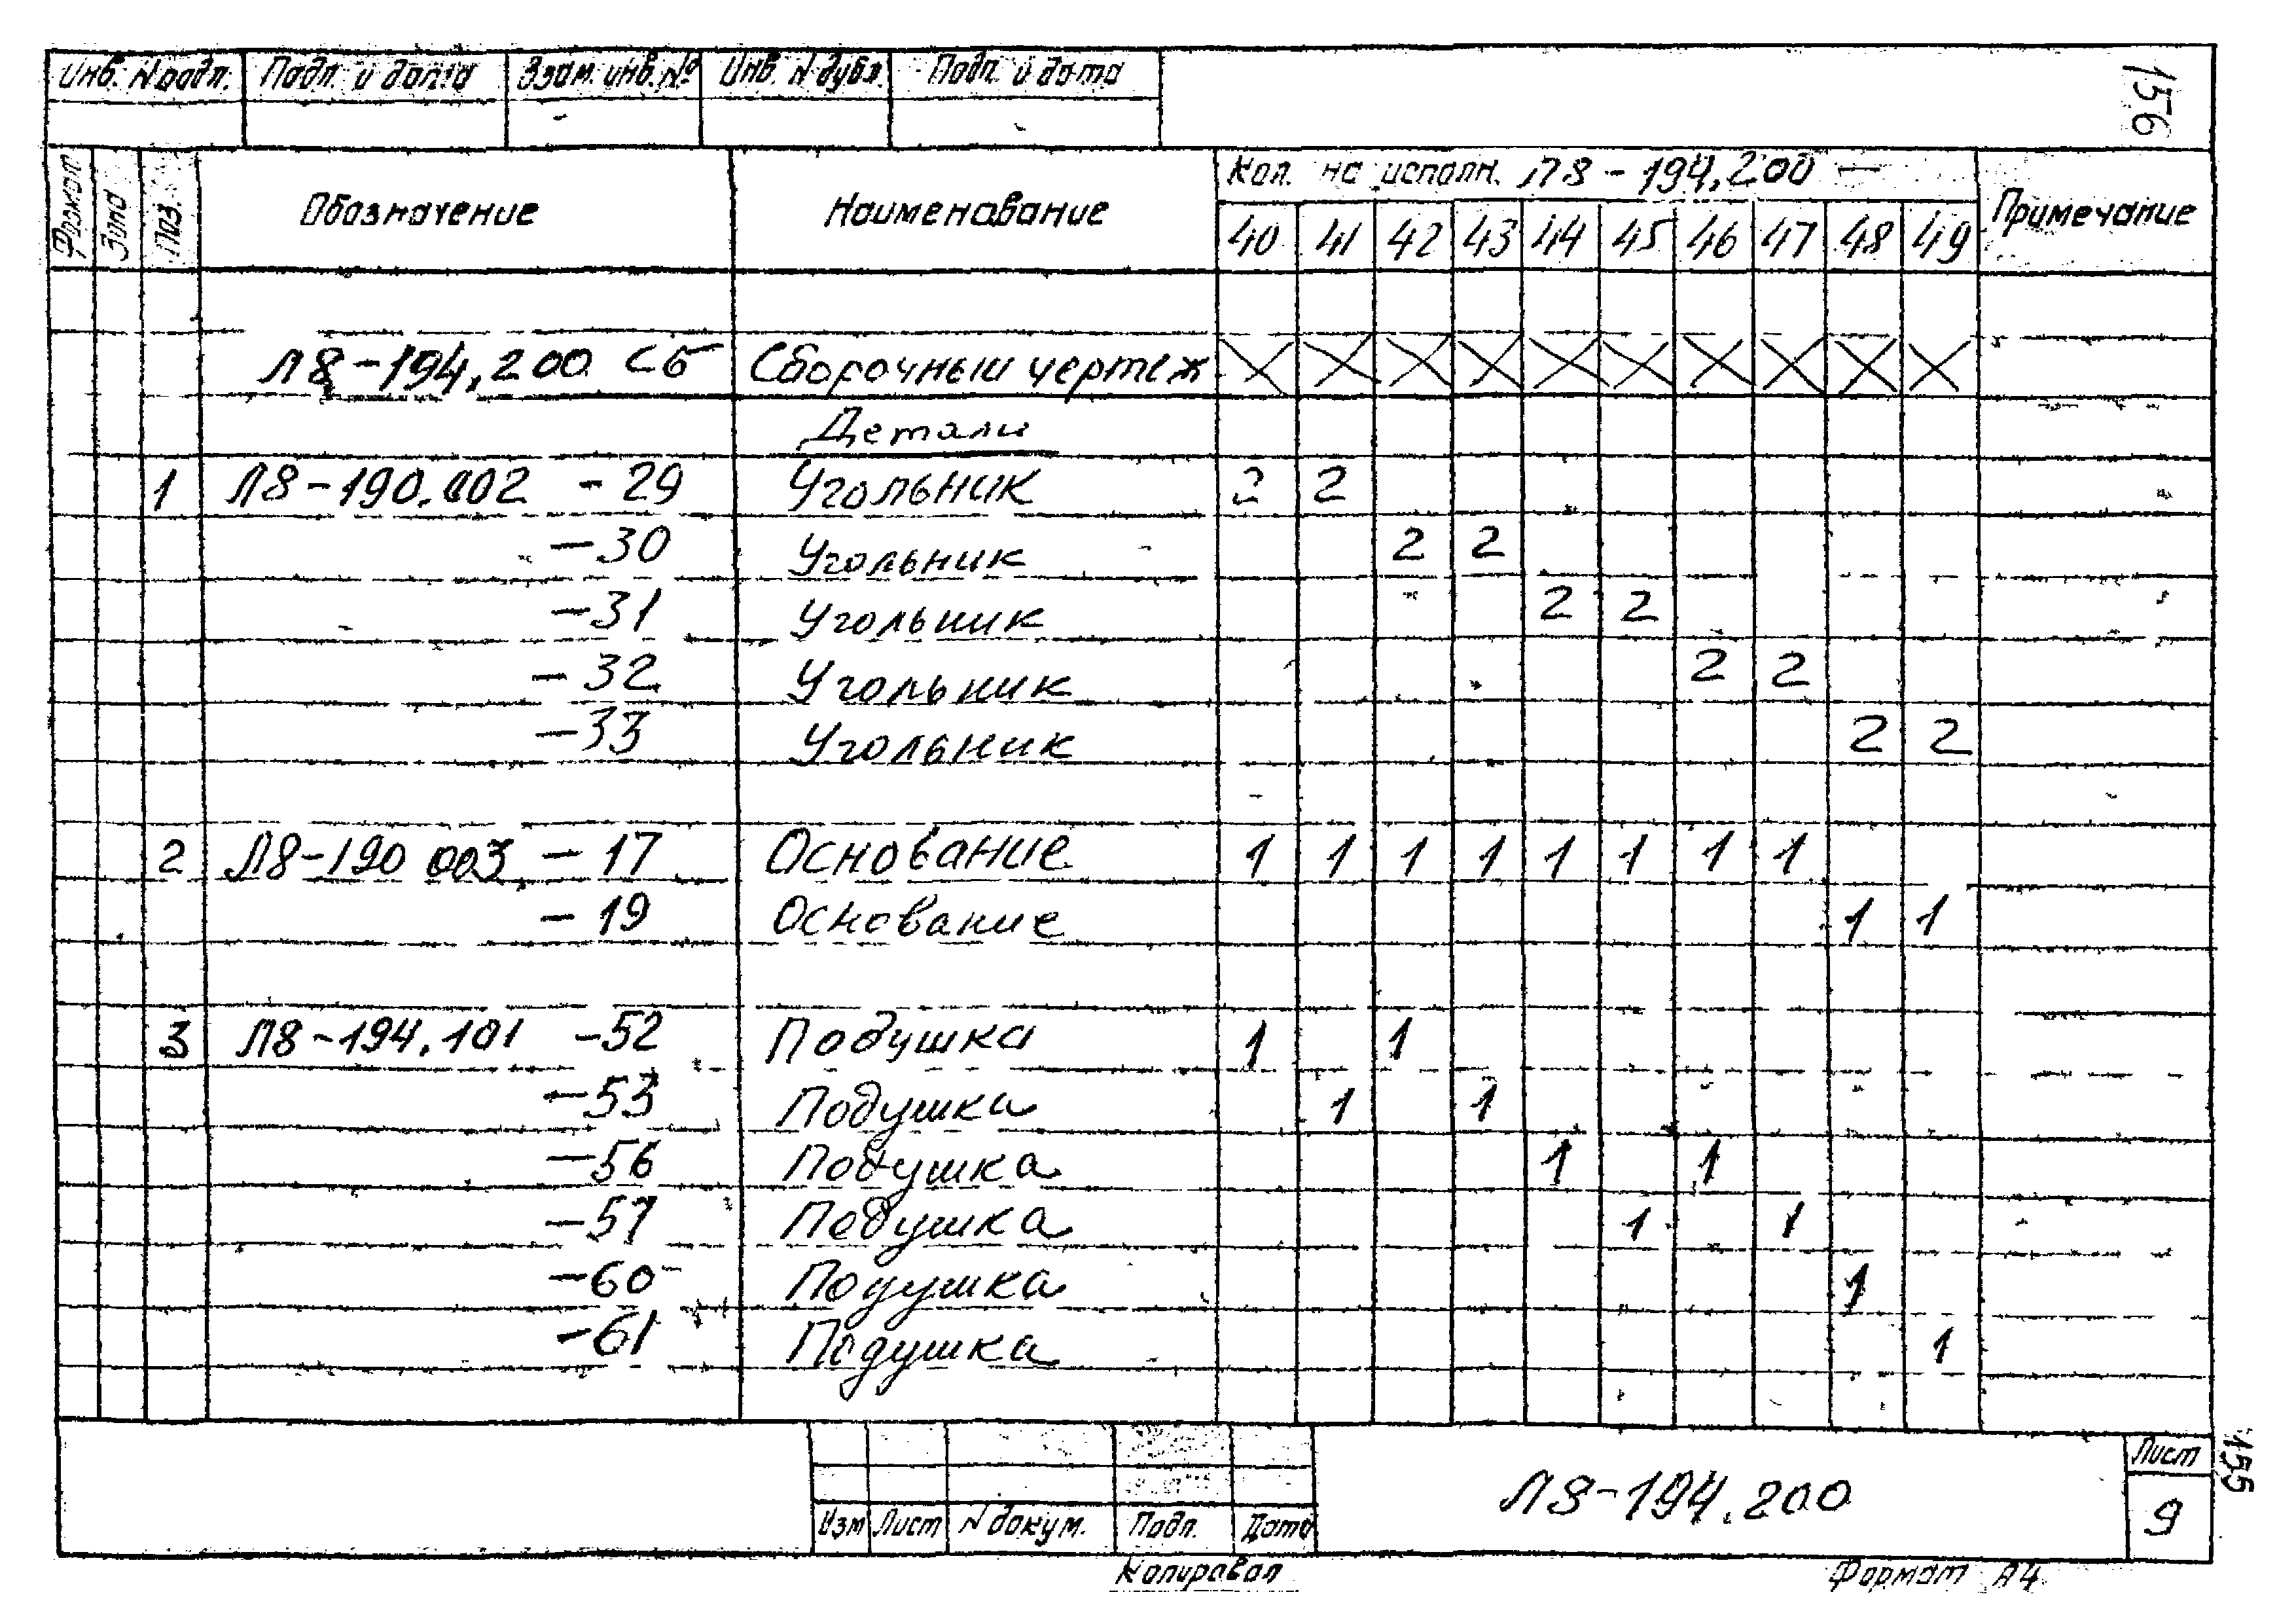 Инв. N подл. Подп. и дата Взам. инв. № Инв. N дубл. Подп. и дата
156
Формат Зона Поз. Обозначение Наименование Кол. на исполн. Л8-194.200 — Примечание
40 41 42 43 44 45 46 47 48 49
Л8-194.200 СБ Сборочный чертеж X X X X X X X X X X
Детали
1 Л8-190.002 -29 Угольник 2 2
-30 Угольник 2 2
-31 Угольник 2 2
-32 Угольник 2 2
-33 Угольник 2 2
2 Л8-190.003 -17 Основание 1 1 1 1 1 1 1 1
-19 Основание 1 1
3 Л8-194.101 -52 Подушка 1 1
-53 Подушка 1 1
-56 Подушка 1 1
-57 Подушка 1 1
-60 Подушка 1
-61 Подушка 1
Изм Лист N докум. Подп. Дата
Л8-194.200
Лист
9
155
Копировал Формат А4